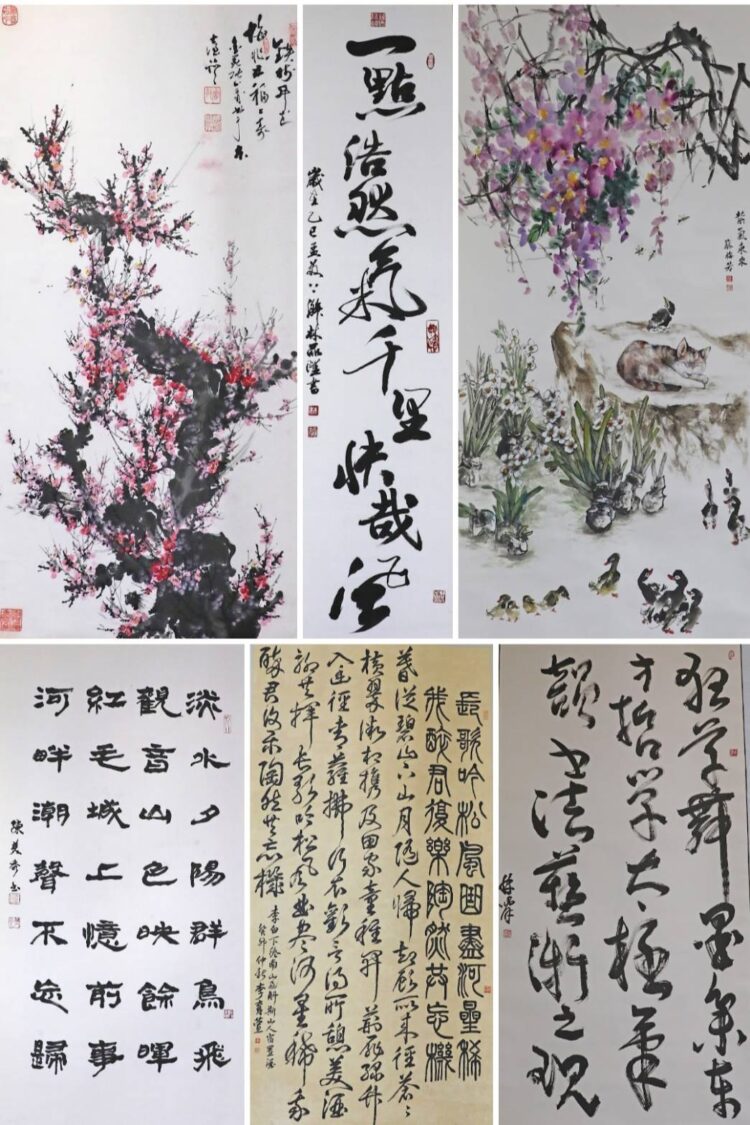 一點浩然氣千里快哉風
紫氣東來
淡水夕陽群鳥飛
觀音山色映餘暉
紅毛城上憶前事
河畔潮聲不忘歸
長歌吟松風曲盡河星稀
我醉君復樂陶然共忘機
暮從碧山下山月隨人歸卻顧所來徑蒼蒼
橫翠微相攜及田家童稚開荊扉綠竹
入幽徑青蘿拂行衣歡言得所憩美酒
聊共揮長歌吟松風曲盡河星稀我
醉君復樂陶然共忘機
李白下終南山過斛斯山人宿置酒
癸卯仲秋
狂草舞墨象東
方哲學太極氣
韻書法藝術之現